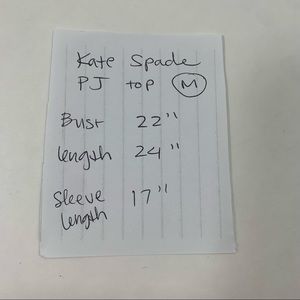 Kate Spade
PJ top M
Bust 22"
length 24"
Sleeve 17"
length